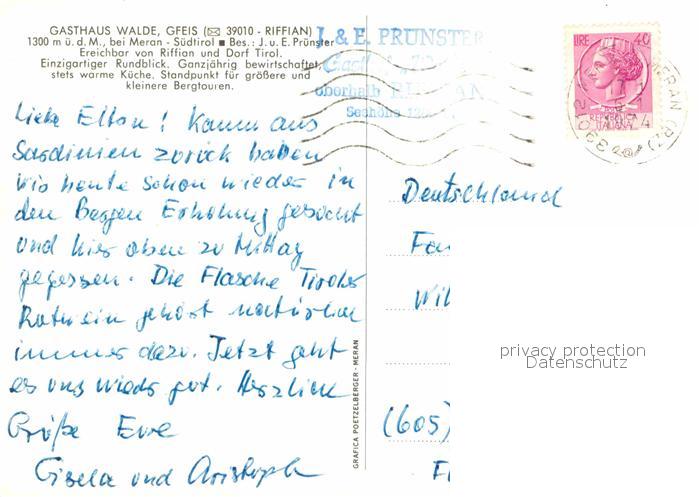 GASTHAUS WALDE, GFEIS (✉ 39010 - RIFFIAN)
1300 m ü. d. M., bei Meran - Südtirol ■ Bes.: J. u. E. Prünster
Ereichbar von Riffian und Dorf Tirol.
Einzigartiger Rundblick. Ganzjährig bewirtschaftet,
stets warme Küche. Standpunkt für größere und
kleinere Bergtouren.
J. & E. PRÜNSTER
oberhalb
Seehöhe
LIRE 40
ITALIANA
MERAN (BZ)
Liebe Eltern! Kaum aus
Sardinien zurück haben
wir heute schon wieder in
den Bergen Erholung gesucht
und hier oben zu Mittag
gegessen. Die Flasche Tiroler
Rotwein gehört natürlich
immer dazu. Jetzt geht
es uns wieder gut. Herzliche
Grüße Eure
Gisela und Christoph
GRAFICA POETZELBERGER - MERAN
Deutschland
Fa
Wil
(605)
privacy protection
Datenschutz